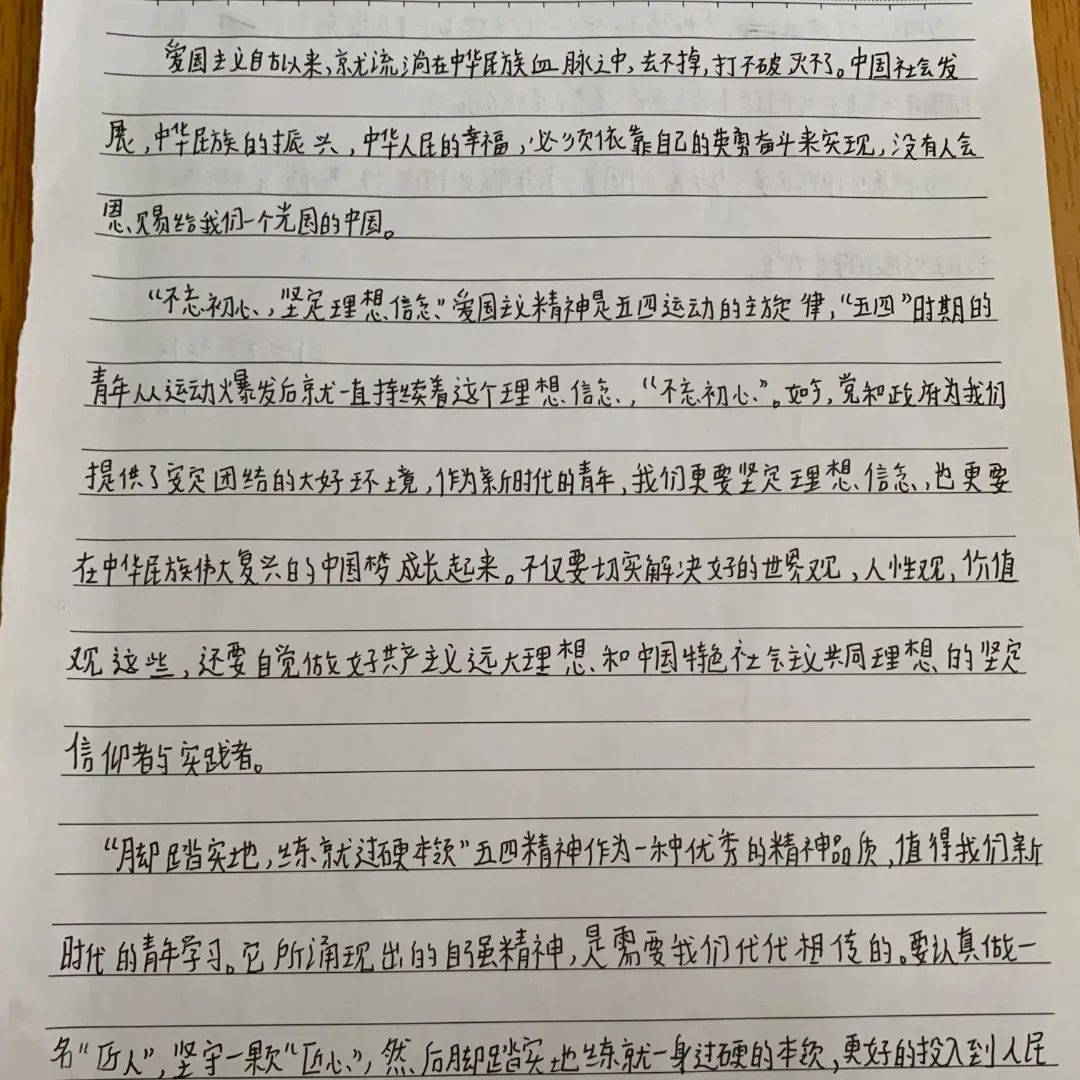 爱国主义自古以来,就流淌在中华民族血脉之中,去不掉,打不破灭不了。中国社会发
展,中华民族的振兴,中华人民的幸福,必须依靠自己的英勇奋斗来实现,没有人会
恩赐给我们一个光国的中国。
“不忘初心,坚定理想信念”爱国主义精神是五四运动的主旋律,“五四”时期的
青年从运动爆发后就一直持续着这个理想信念,“不忘初心”。如今,党和政府为我们
提供了安定团结的大好环境,作为新时代的青年,我们更要坚定理想信念,也更要
在中华民族伟大复兴的中国梦成长起来。不仅要切实解决好的世界观,人性观,价值
观这些,还要自觉做好共产主义远大理想和中国特色社会主义共同理想的坚定
信仰者与实践者。
“脚踏实地,练就过硬本领”五四精神作为一种优秀的精神品质,值得我们新
时代的青年学习。它所涌现出的自强精神,是需要我们代代相传的。要认真做一
名“匠人”,坚守一颗“匠心”,然后脚踏实地练就一身过硬的本领,更好的投入到人民